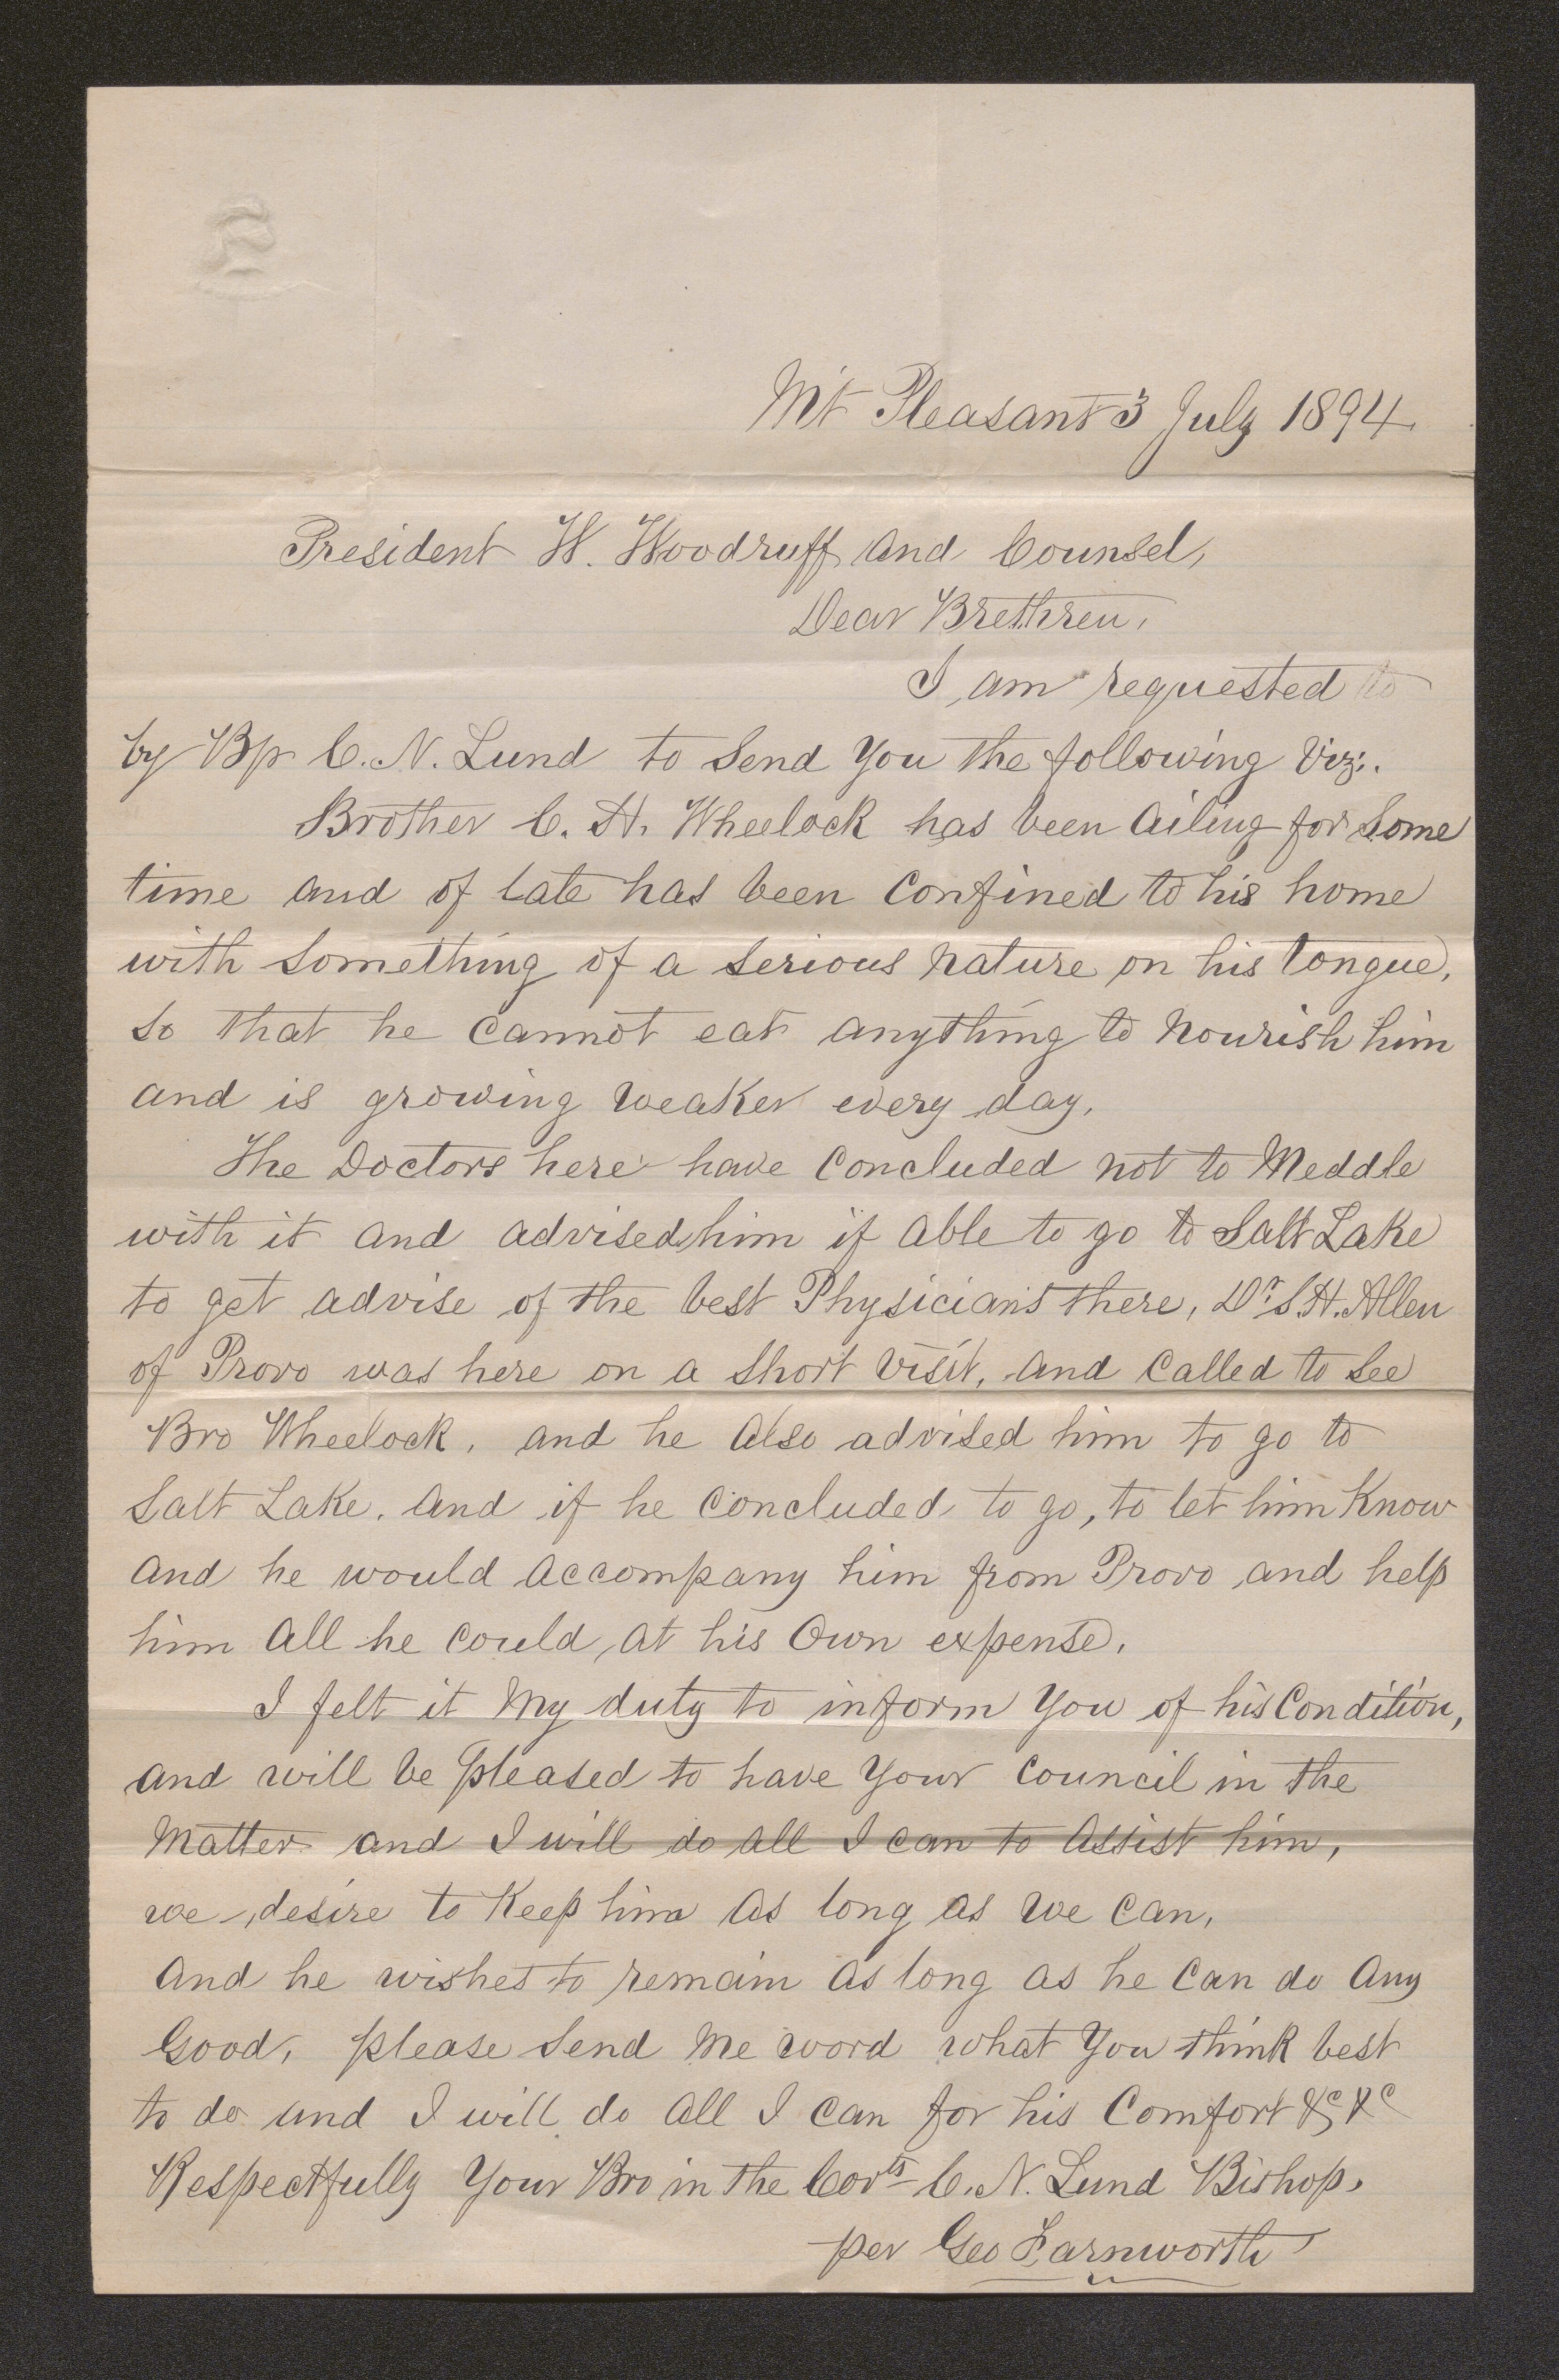 Mt Pleasant 3 July 1894.
President W. Woodruff and Counsel,
Dear Brethren,
I am requested to
by Bp C. N. Lund to Send You the following Viz.
Brother C. H. Wheelock has been Ailing for Some
time and of late has been Confined to his home
with Something of a Serious Nature on his tongue,
So that he Cannot eat anything to Nourish him
and is growing weaker every day.
The Doctors here have Concluded not to Meddle
with it and advised him if able to go to Salt Lake
to get advise of the best Physicians there, Dr S. H. Allen
of Provo was here on a Short Visit, and Called to See
Bro Wheelock, and he Also advised him to go to
Salt Lake. And if he Concluded to go, to let him Know
and he would Accompany him from Provo and help
him All he Could, at his Own expense.
I felt it My duty to inform You of his Condition,
and will be pleased to have Your Council in the
Matter and I will do all I can to Assist him,
we desire to Keep him As long as we Can,
And he wishes to remain As long as he Can do Any
Good, please Send Me word what You think best
to do and I will do All I Can for his Comfort &c &c
Respectfully Your Bro in the Covts C. N. Lund Bishop.
per Geo Farnworth